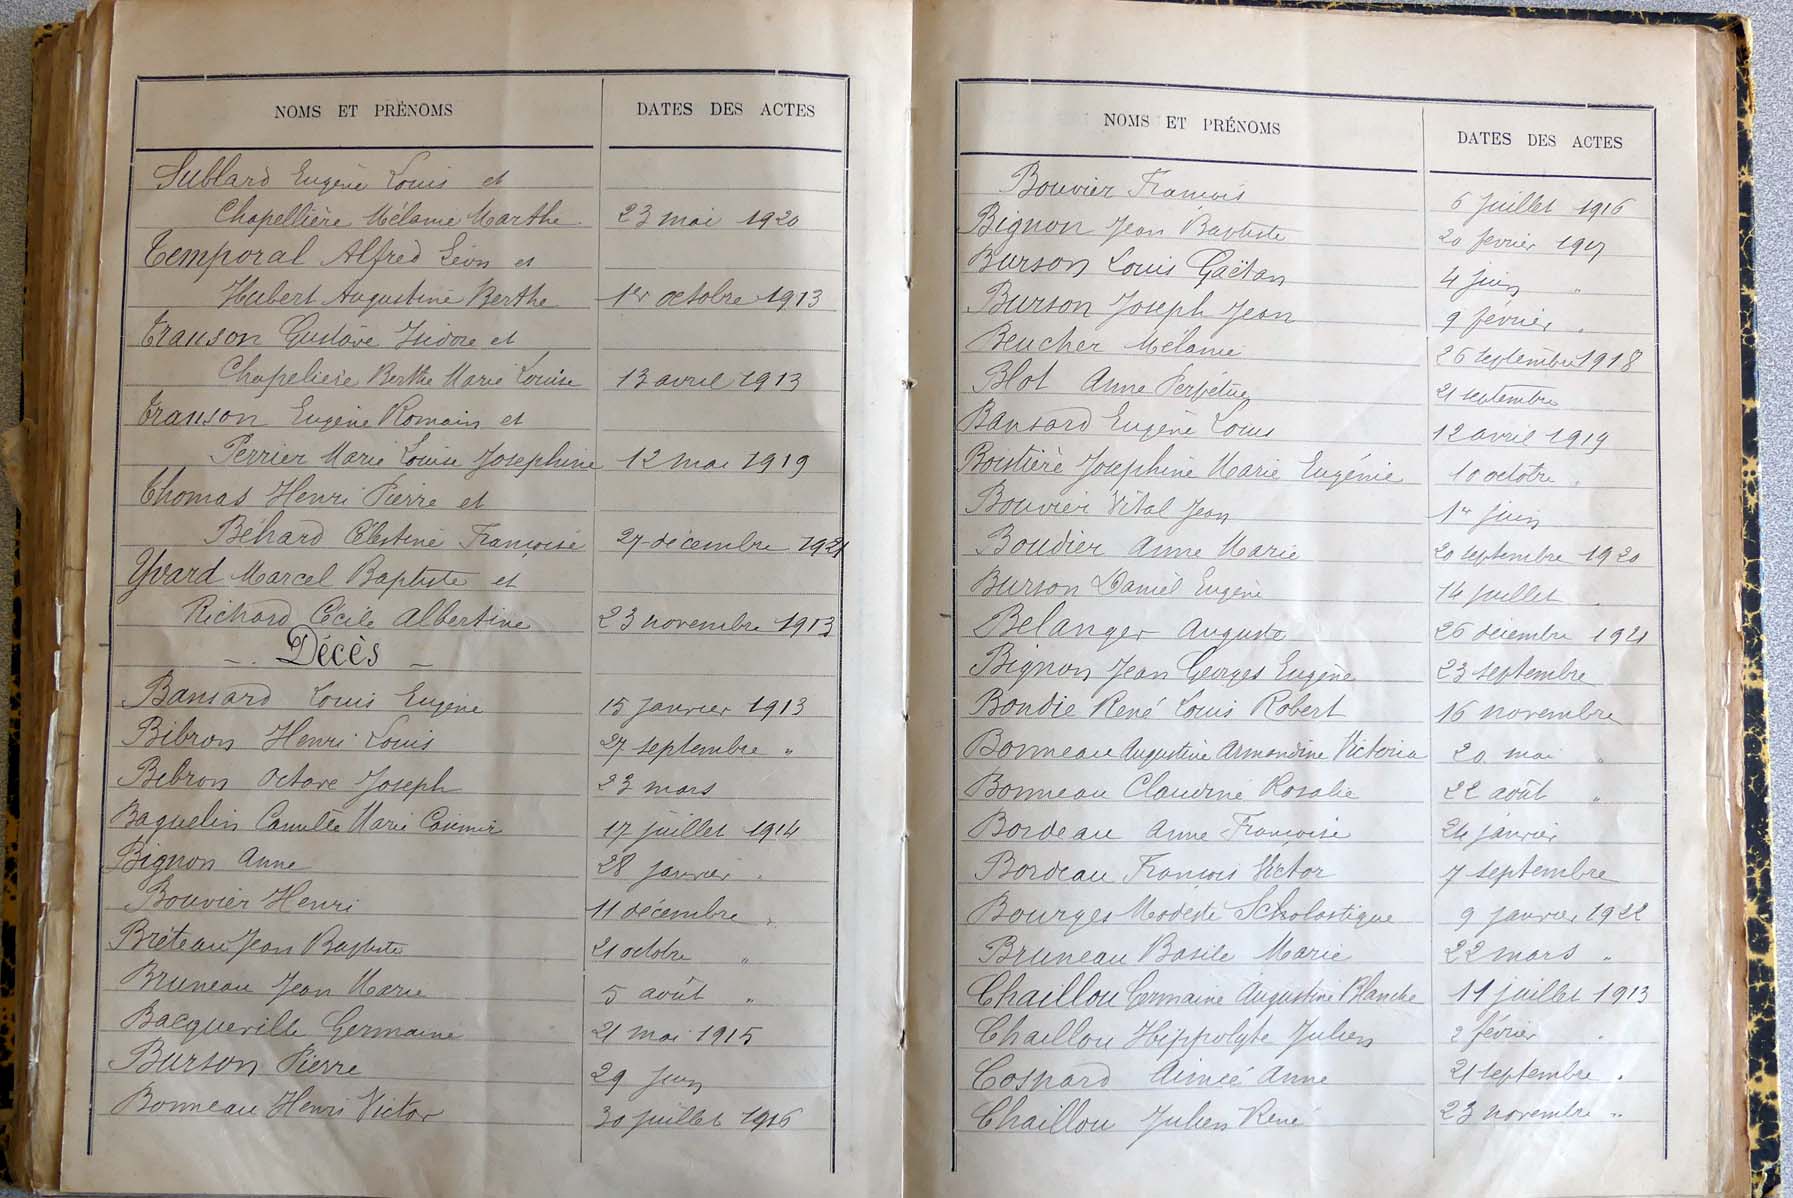 NOMS ET PRÉNOMS DATES DES ACTES
Sublard Eugène Louis et
Chapellière Mélanie Marthe 23 mai 1920
Temporal Alfred Léon et
Hubert Augustine Berthe 1er octobre 1913
Transon Gustave Isidore et
Chapelière Berthe Marie Louise 13 avril 1913
Transon Eugène Romain et
Perrier Marie Louise Josephine 12 mai 1919
Thomas Henri Pierre et
Béhard Célestine Françoise 27 décembre 1921
Yvard Marcel Baptiste et
Richard Cécile Albertine 23 novembre 1913
- Décès -
Bansard Louis Eugène 15 janvier 1913
Bibron Henri Louis 27 septembre "
Bibron Octave Joseph 23 mars
Baguelin Camille Marie Casimir 17 juillet 1914
Bignon Anne 28 janvier "
Bouvier Henri 11 décembre "
Bréteau Jean Baptiste 21 octobre "
Bruneau Jean Marie 5 août "
Bacqueville Germaine 21 mai 1915
Burson Pierre 29 juin
Bonneau Henri Victor 30 juillet 1916
NOMS ET PRÉNOMS DATES DES ACTES
Bouvier François 6 juillet 1916
Bignon Jean Baptiste 20 février 1917
Burson Louis Gaëtan 4 juin "
Burson Joseph Jean 9 février "
Beucher Mélanie 26 septembre 1918
Blot Anne Perpétue 21 septembre
Bansard Eugène Louis 12 avril 1919
Boistière Josephine Marie Eugénie 10 octobre "
Bouvier Vital Jean 1er juin
Boudier Anne Marie 20 septembre 1920
Burson Daniel Eugène 14 juillet "
Belanger Auguste 26 décembre 1921
Bignon Jean Georges Eugène 23 septembre
Bondie René Louis Robert 16 novembre
Bonneau Augustine Armandine Victoria 20 mai "
Bonneau Claudine Rosalie 22 août "
Bordeau Anne Françoise 24 janvier
Bordeau François Victor 7 septembre
Bourges Modeste Scholastique 9 janvier 1922
Bruneau Basile Marie 22 mars "
Chaillou Germaine Augustine Blanche 11 juillet 1913
Chaillou Hippolyte Julien 2 février "
Cosnard Aimée Anne 21 septembre "
Chaillou Julien René 23 novembre "